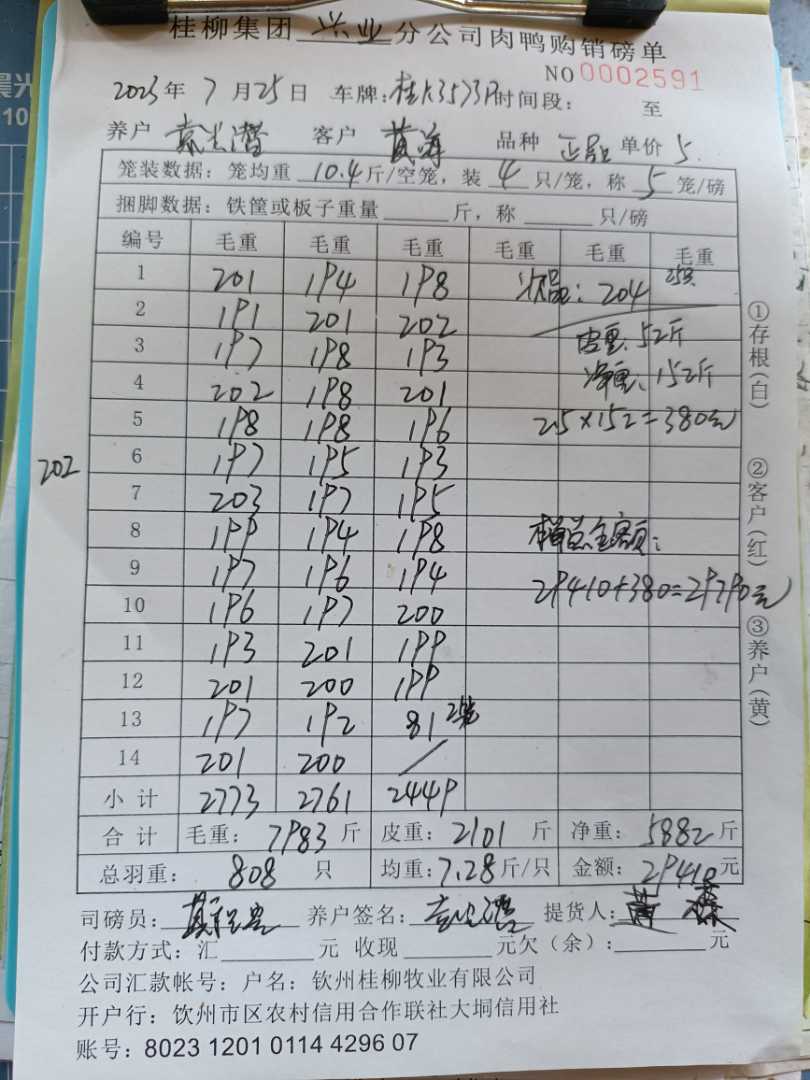 桂柳集团 兴业 分公司肉鸭购销磅单
NO 0002591
2023 年 7 月 25 日 车牌: 时间段: 至
养户 客户 黄海 品种 单价 5
笼装数据: 笼均重 10.4 斤/空笼, 装 4 只/笼, 称 5 笼/磅
捆脚数据: 铁筐或板子重量 斤, 称 只/磅
编号 毛重 毛重 毛重 毛重 毛重 毛重
1 201 194 198 : 204
2 191 201 202 皮重: 52斤
3 197 198 193 净重: 152斤
4 202 198 201
5 198 198 196 2.5×152=380元
202 6 197 195 193
7 203 197 195
8 199 194 198 本单总金额:
9 197 196 194 29410+380=29790元
10 196 197 200
11 193 201 199
12 201 200 199
13 197 192 81 2笼
14 201 200 /
小计 2773 2761 2449
合计 毛重: 7983 斤 皮重: 2101 斤 净重: 5882 斤
总羽重: 808 只 均重: 7.28 斤/只 金额: 29410 元
司磅员: 养户签名: 提货人:
付款方式: 汇 元 收现 元欠(余): 元
公司汇款帐号: 户名: 钦州桂柳牧业有限公司
开户行: 饮州市区农村信用合作联社大垌信用社
账号: 8023 1201 0114 4296 07
①存根(白) ②客户(红) ③养户(黄)